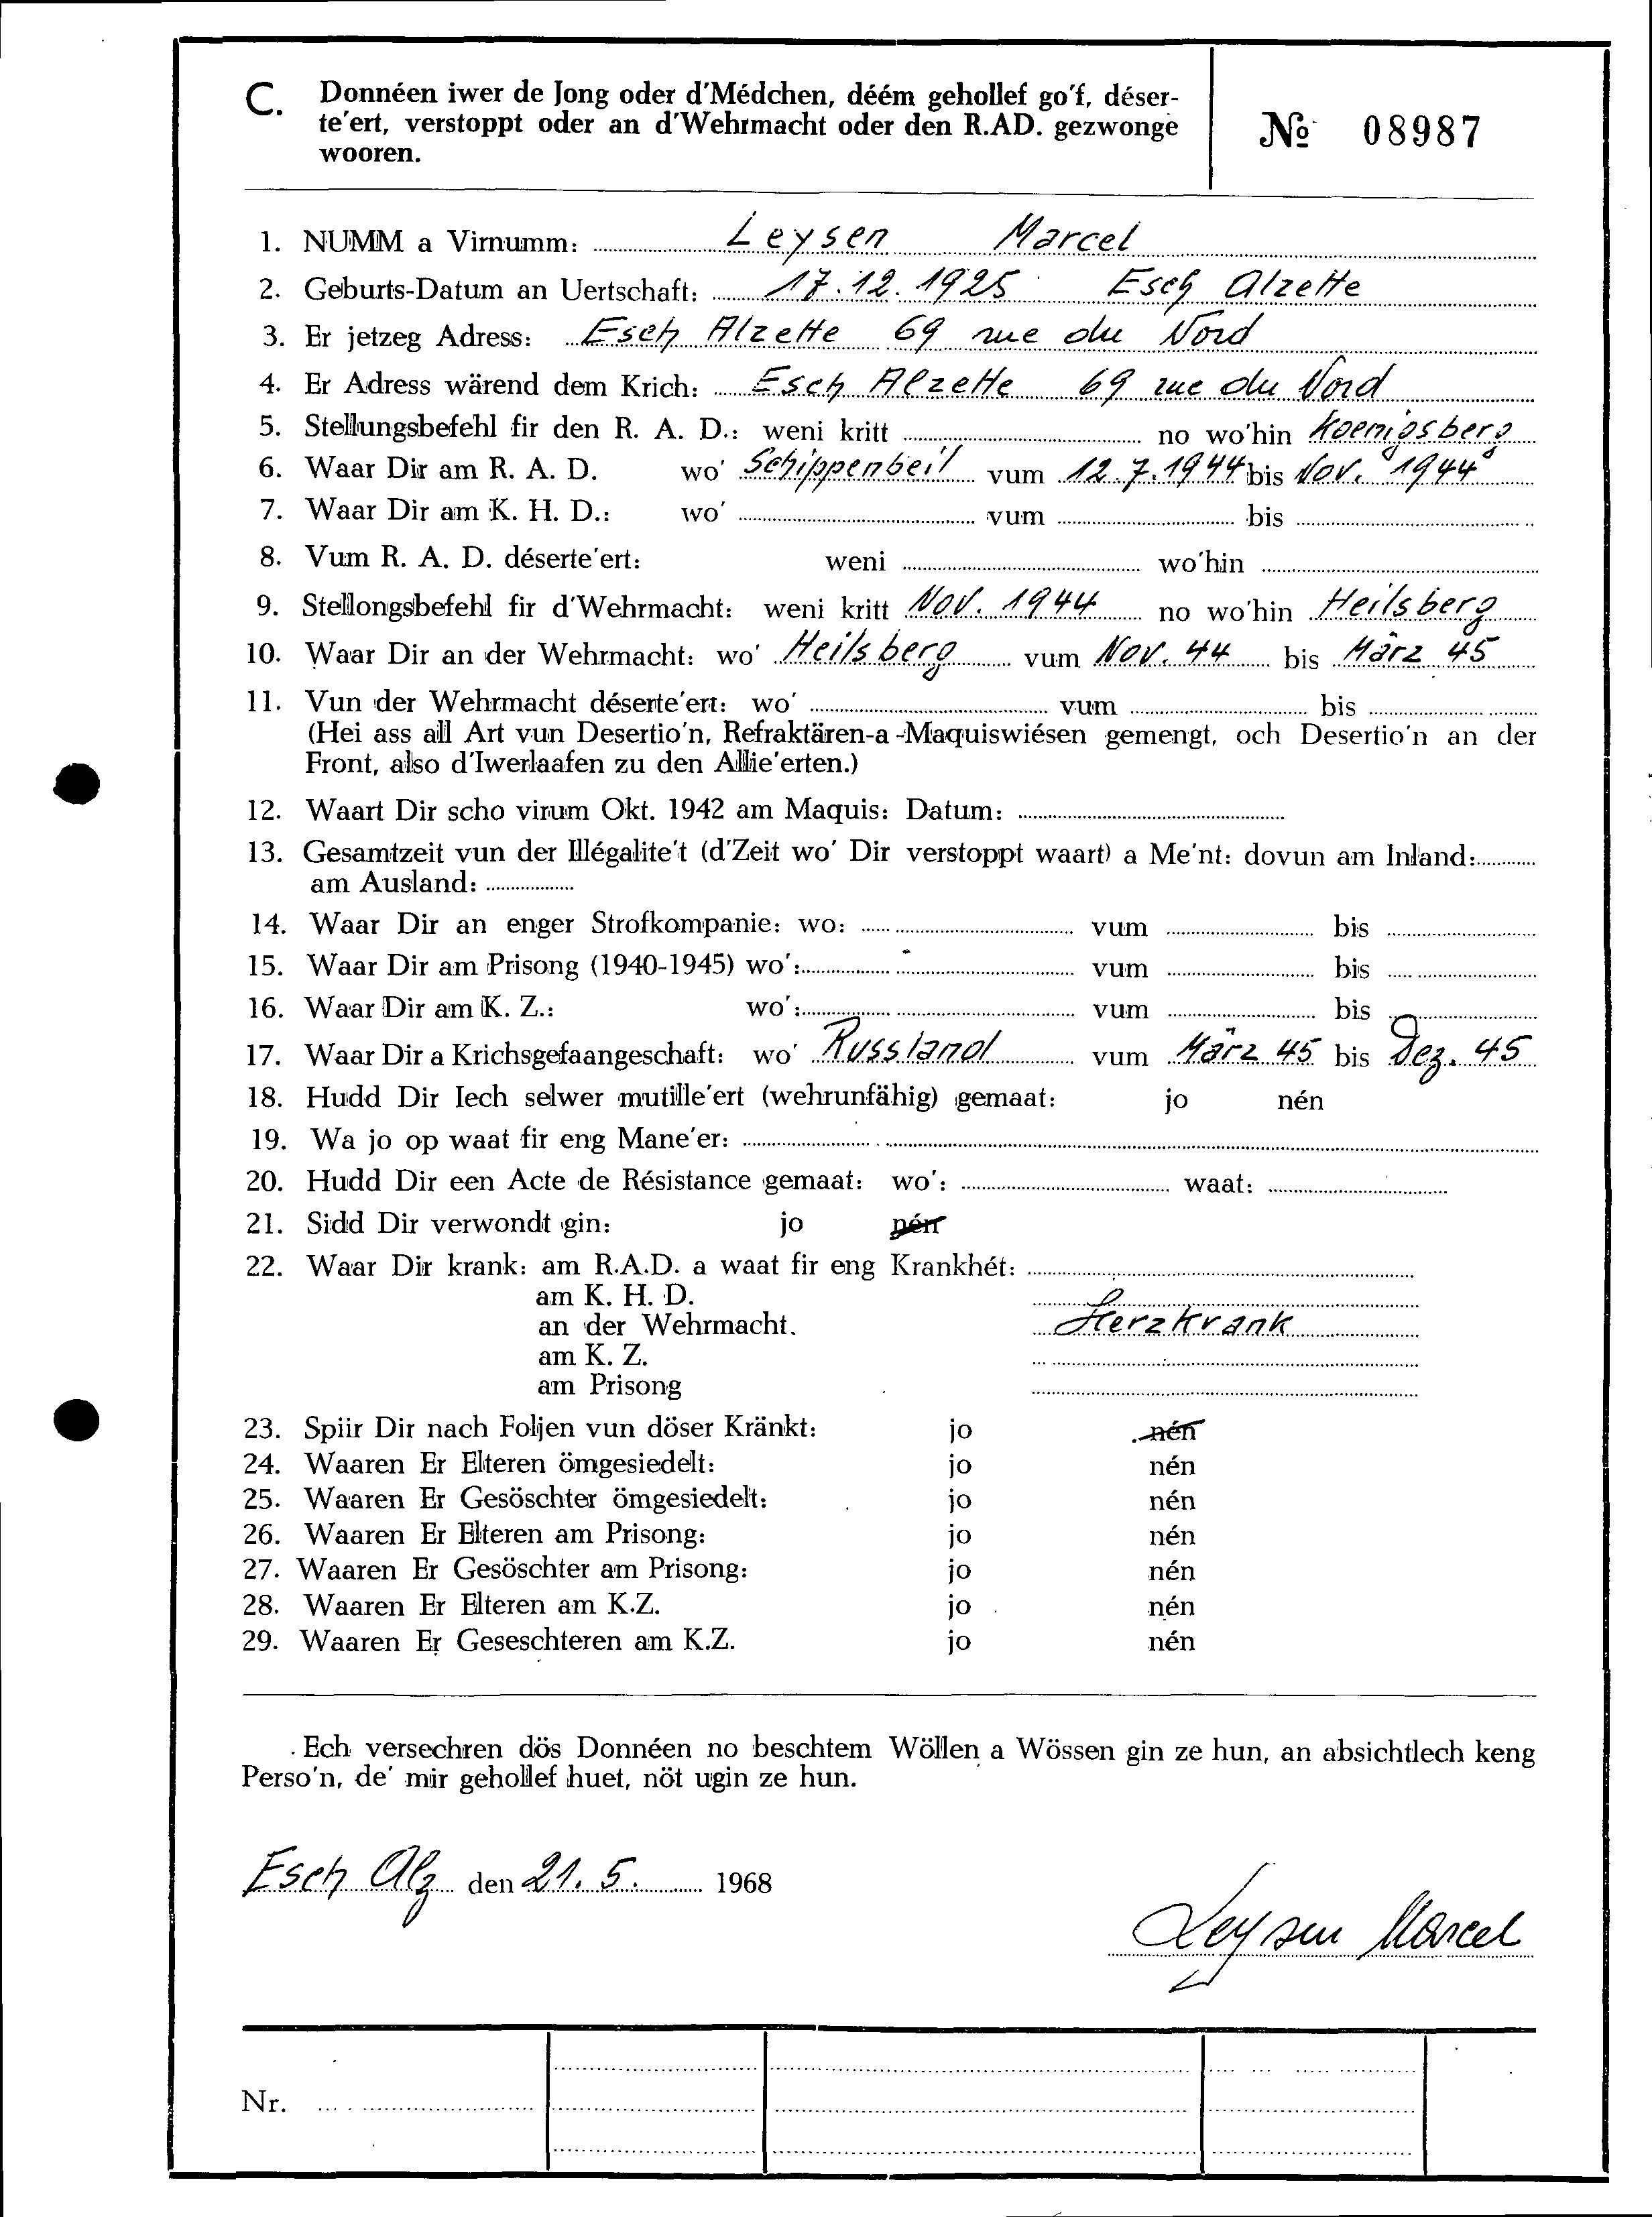 C. Donnéen iwer de Jong oder d'Médchen, déém gehollef go'f, déser-
te'ert, verstoppt oder an d'Wehrmacht oder den R.AD. gezwonge
wooren.
№ 08987
1. NUMM a Virnumm: Leysen Marcel
2. Geburts-Datum an Uertschaft: 17.12.1925 Esch Alzette
3. Er jetzeg Adress: Esch Alzette 69 rue du Nord
4. Er Adress wärend dem Krich: Esch Alzette 69 rue du Nord
5. Stellungsbefehl fir den R. A. D.: weni kritt no wo'hin Koenigsberg
6. Waar Dir am R. A. D. wo' Schippenbeil vum 12.7.1944 bis Nov. 1944
7. Waar Dir am K. H. D.: wo' vum bis
8. Vum R. A. D. déserte'ert: weni wo'hin
9. Stellongsbefehl fir d'Wehrmacht: weni kritt Nov. 1944 no wo'hin Heilsberg
10. Waar Dir an der Wehrmacht: wo' Heilsberg vum Nov. 44 bis März 45
11. Vun der Wehrmacht déserte'ert: wo' vum bis
(Hei ass all Art vun Desertio'n, Refraktären-a-Maquiswiésen gemengt, och Desertio'n an der
Front, also d'Iwerlaafen zu den Allie'erten.)
12. Waart Dir scho virum Okt. 1942 am Maquis: Datum:
13. Gesamtzeit vun der Illégalite't (d'Zeit wo' Dir verstoppt waart) a Me'nt: dovun am Inland:
am Ausland:
14. Waar Dir an enger Strofkompanie: wo: vum bis
15. Waar Dir am Prisong (1940-1945) wo': vum bis
16. Waar Dir am K. Z.: wo': vum bis
17. Waar Dir a Krichsgefaangeschaft: wo' Russland vum März 45 bis Dez. 45
18. Hudd Dir Iech selwer mutille'ert (wehrunfähig) gemaat: jo nén
19. Wa jo op waat fir eng Mane'er:
20. Hudd Dir een Acte de Résistance gemaat: wo': waat:
21. Sidd Dir verwondt gin: jo nén
22. Waar Dir krank: am R.A.D. a waat fir eng Krankhét:
am K. H. D.
an der Wehrmacht. Herzkrank
am K. Z.
am Prisong
23. Spiir Dir nach Foljen vun döser Kränkt: jo nén
24. Waaren Er Elteren ömgesiedelt: jo nén
25. Waaren Er Gesöschter ömgesiedelt: jo nén
26. Waaren Er Elteren am Prisong: jo nén
27. Waaren Er Gesöschter am Prisong: jo nén
28. Waaren Er Elteren am K.Z. jo nén
29. Waaren Er Geseschteren am K.Z. jo nén
Ech versechren dös Donnéen no beschtem Wöllen a Wössen gin ze hun, an absichtlech keng
Perso'n, de' mir gehollef huet, nöt ugin ze hun.
Esch Alz den 21. 5. 1968
Leysen Marcel
Nr.